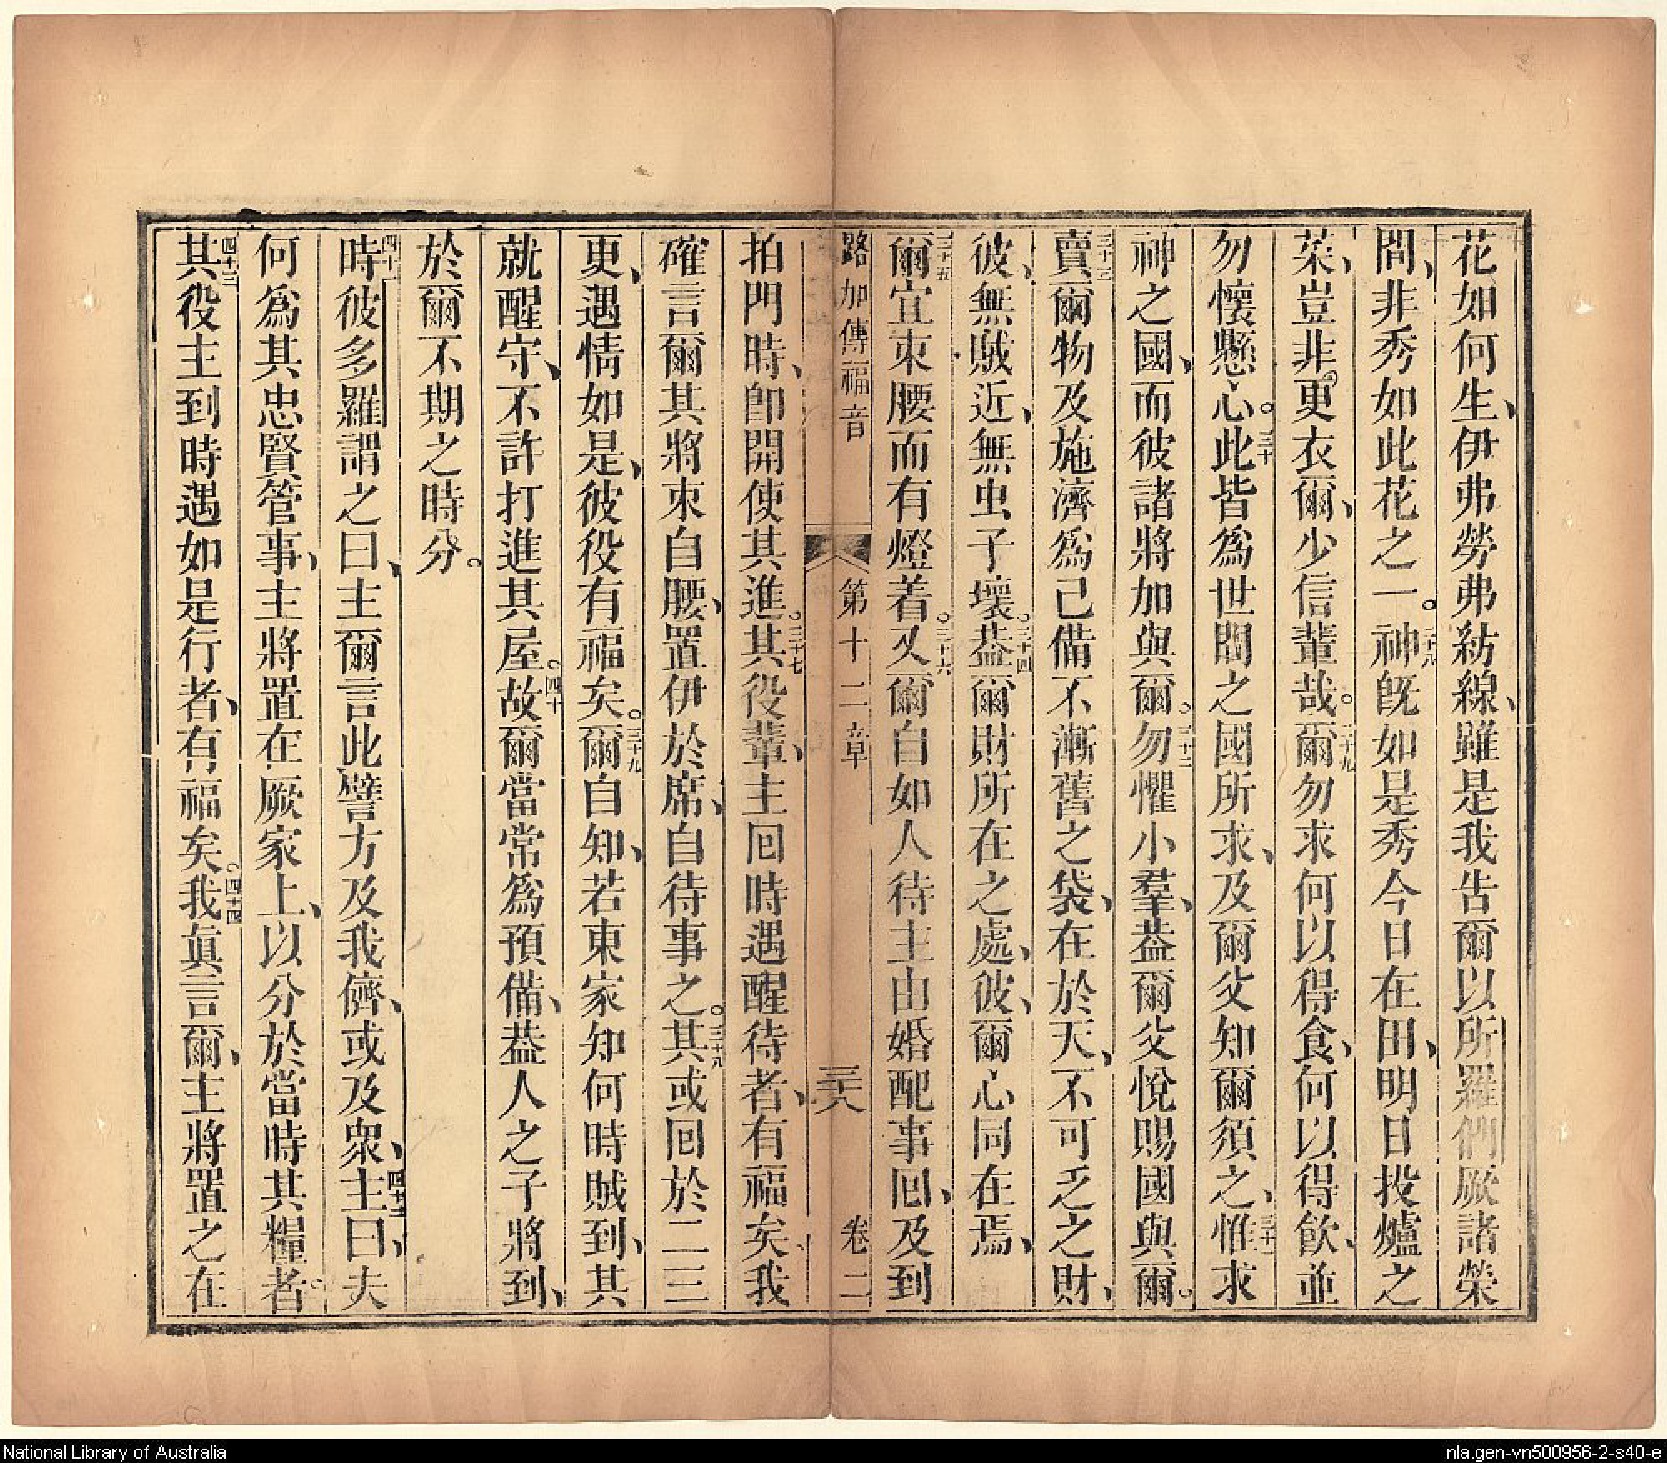 花如何生、伊弗勞弗紡線、雖是我告爾以所羅們厥諸榮
間、非秀如此花之一。二十八神旣如是秀今日在田、明日投爐之
菜、豈非更衣爾、少信輩哉。二十九爾勿求何以得食、何以得飲、並
勿懷懸心。三十此皆爲世間之國所求、及爾父知爾須之、三十一惟求
神之國、而彼諸將加與爾。三十二勿懼小羣、葢爾父悅賜國與爾。
三十三賣爾物及施濟爲己備不漸舊之袋、在於天、不可乏之財、
彼、無賊近、無虫子壞。三十四葢爾財所在之處、彼、爾心同在焉、
三十五爾宜束腰而有燈着。三十六又爾自如人待主由婚配事回、及到
路加傳福音 第十二章 三十六 卷二
拍門時、卽開使其進。三十七其役輩、主回時遇醒待者、有福矣、我
確言爾其將束自腰、置伊於席、自待事之。三十八其或回於二三
更、遇情如是、彼役有福矣。三十九爾自知、若東家知何時賊到、其
就醒守、不許打進其屋。四十故爾當常爲預備、葢人之子將到、
於爾不期之時分。
四十一時彼多羅謂之曰、主爾言此譬方及我儕、或及衆、四十二主曰、夫
何爲其忠賢管事、主將置在厥家上、以分於當時其糧者。
四十三其役主到時遇如是行者、有福矣。四十四我眞言爾、主將置之在
National Library of Australia
nla.gen-vn500956-2-s40-e